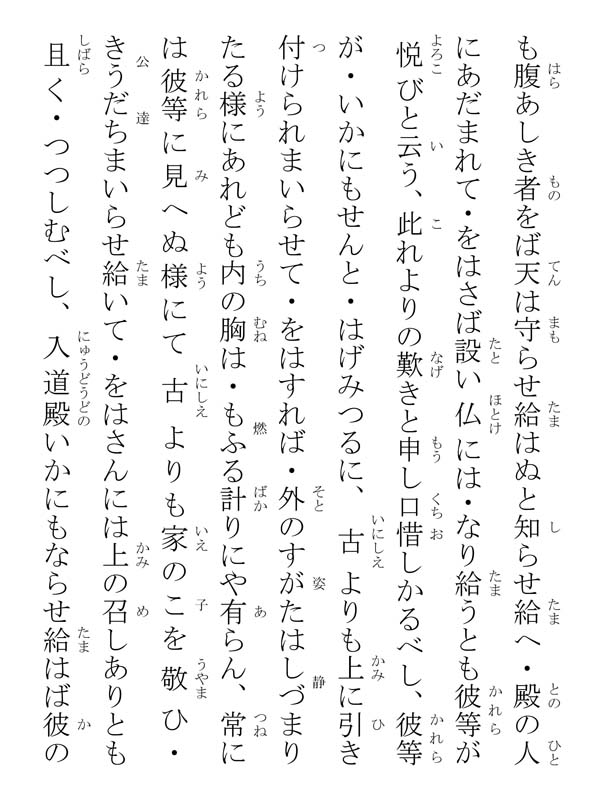 も腹あしき者をば天は守らせ給はぬと知らせ給へ・殿の人
にあだまれて・をはさば設い仏には・なり給うとも彼等が
悦びと云う、此れよりの歎きと申し口惜しかるべし、彼等
が・いかにもせんと・はげみつるに、古よりも上に引き
付けられまいらせて・をはすれば・外のすがたはしづまり
たる様にあれども内の胸は・もふる計りにや有らん、常に
は彼等に見へぬ様にて古よりも家のこを敬ひ・
きうだちまいらせ給いて・をはさんには上の召しありとも
且く・つつしむべし、入道殿いかにもならせ給はば彼の